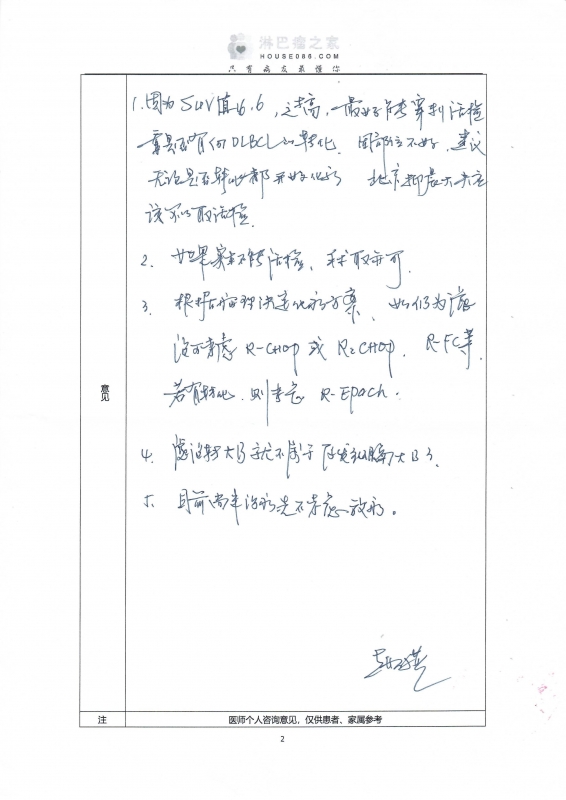 淋巴瘤之家
HOUSE086.COM
只有病友最懂你
1. 因为SUV值16.6，过高，最好能穿刺活检
看是否有向DLBCL的转化 因部位不好，建议
无论是否转化都开始化疗 北京
该可以取活检.
2. 如果实在不能活检，亦可.
3. 根据病理决定化疗方案，如仍为滤泡
可考虑 R-CHOP 或 R2CHOP，R-FC等，
若有转化，则考虑 R-EPOCH.
意见
4. 滤泡转大B就不属于原发纵膈大B了.
5. 目前尚未治疗先不考虑放疗。
注
医师个人咨询意见，仅供患者、家属参考
2